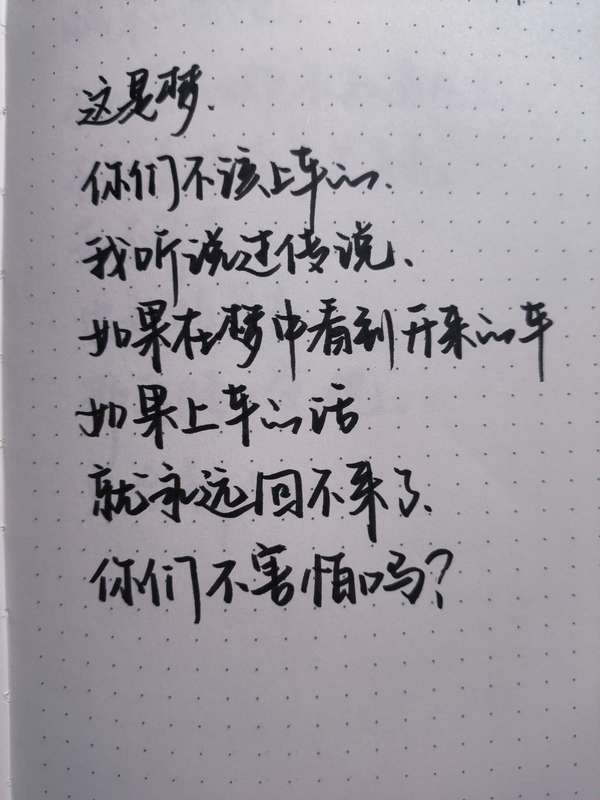 这是梦.
你们不该上车的.
我听说过传说、
如果在梦中看到开来的车
如果上车的话
就永远回不来了.
你们不害怕吗?